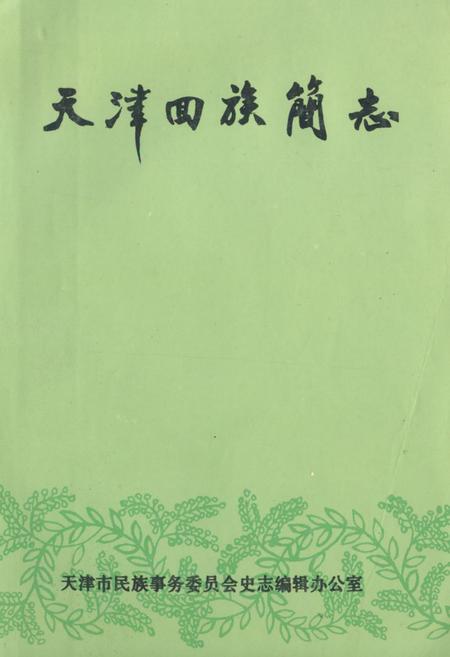 天津回族简志
天津市民族事务委员会史志编辑办公室